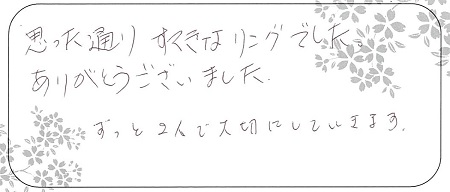 思った通り すてきな リングでした。
ありがとうございました.
ずっと 2人で大切にしていきます.